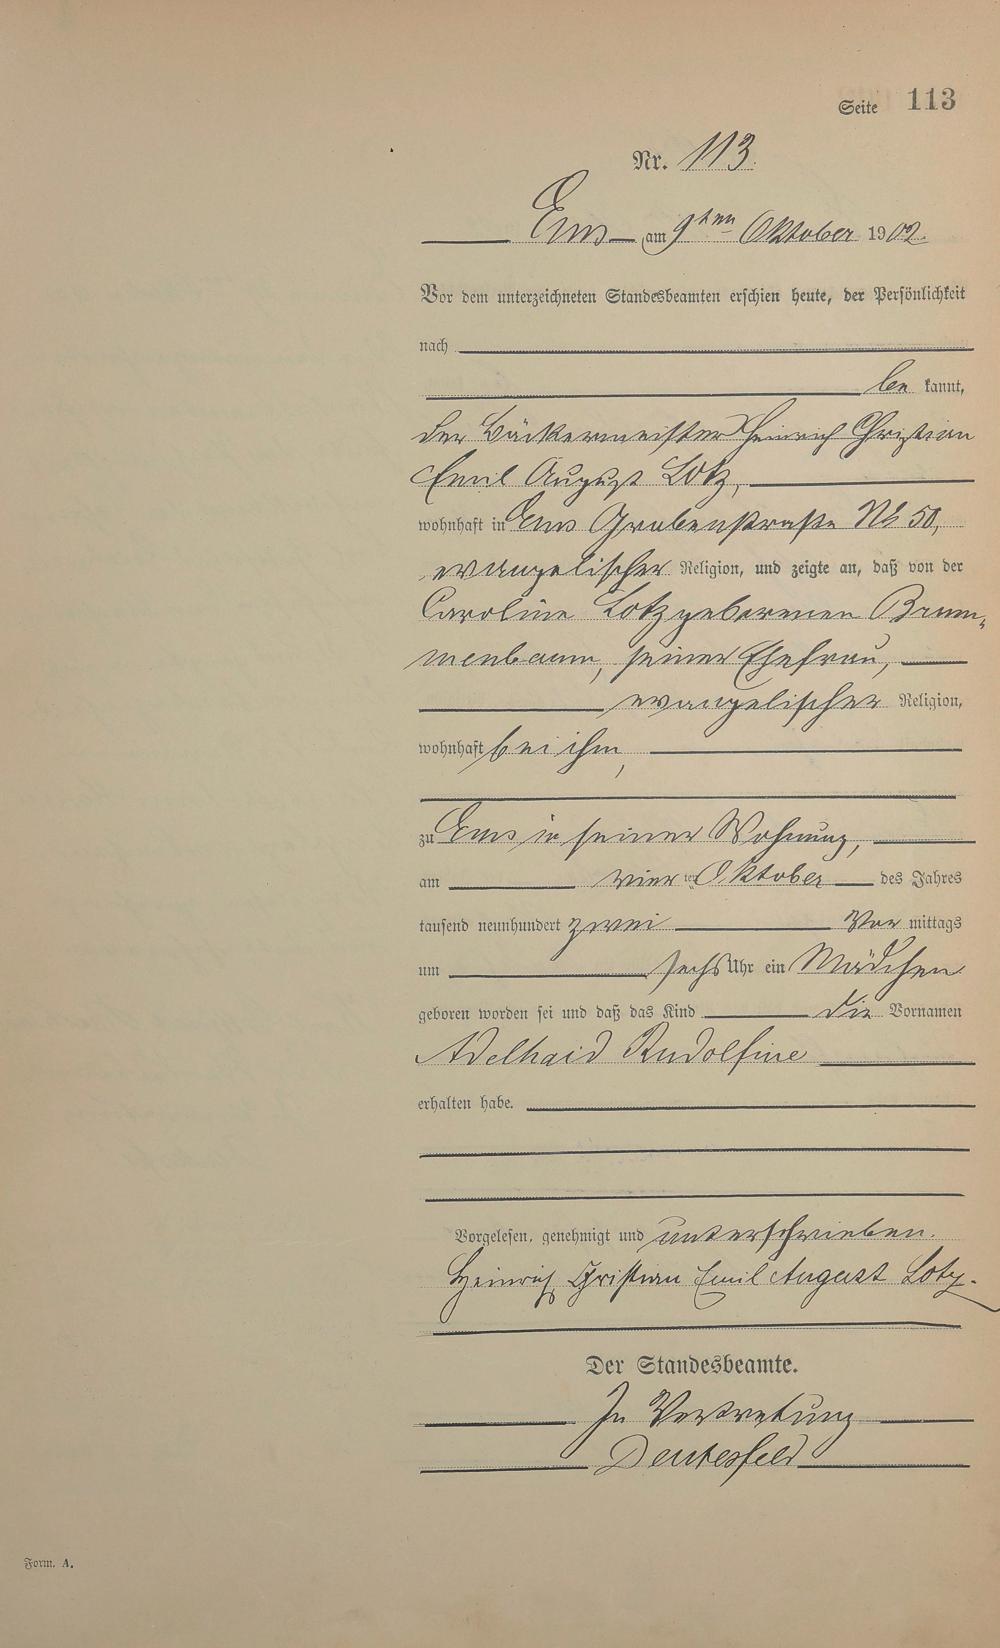 Seite 113
Nr. 113.
Ems, am 9ten Oktober 1902.
Vor dem unterzeichneten Standesbeamten erschien heute, der Persönlichkeit
nach
be kannt,
der Bäckermeister Heinrich Christian
Emil August Lotz,
wohnhaft in Ems Grabenstraße No 50,
evangelischer Religion, und zeigte an, daß von der
Caroline Lotz geborenen
seiner Ehefrau,
evangelischer Religion,
wohnhaft bei ihm,
zu Ems in seiner Wohnung,
am vier ten Oktober des Jahres
tausend neunhundert zwei Vor mittags
um sechs Uhr ein Mädchen
geboren worden sei und daß das Kind die Vornamen
Adelhaid Rudolfine
erhalten habe.
Vorgelesen, genehmigt und unterschrieben.
Heinrich Christian Emil August Lotz.
Der Standesbeamte.
In Vertretung
Form. A.